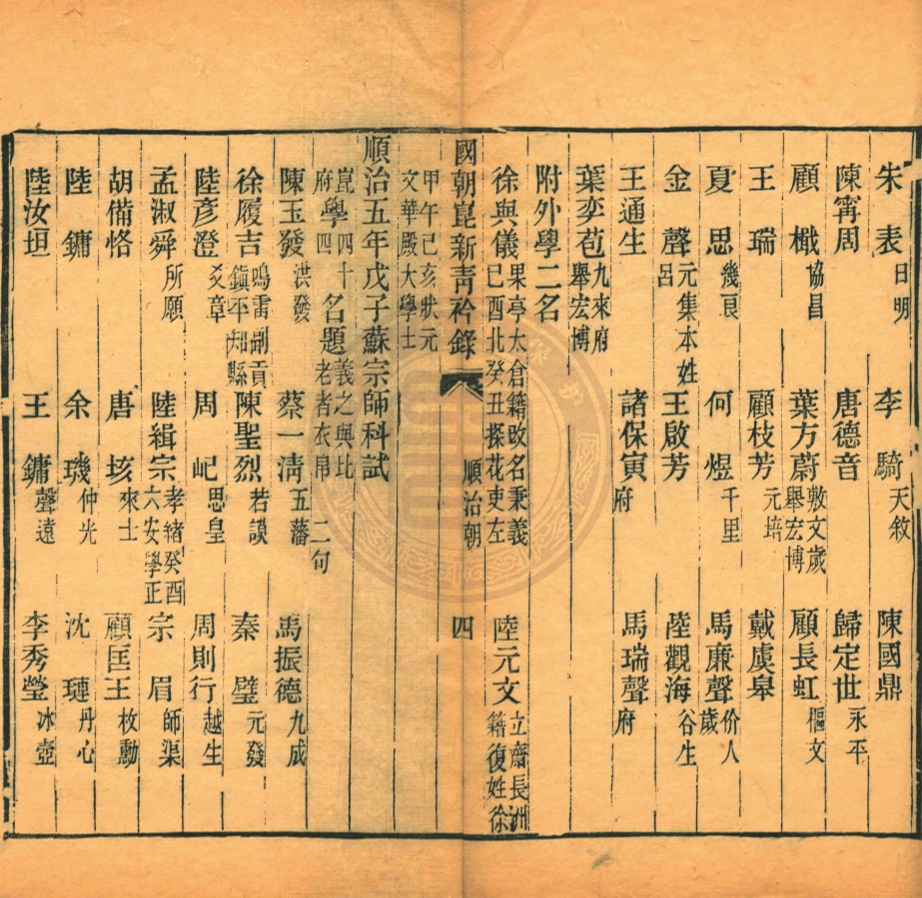 朱表日明　李騎天敘　陳國鼎
陳甯周　唐德音　歸定世永平
顧檝協昌　葉方蔚敷文歲舉宏博　顧長虹樞文
王瑞　顧枝芳元培　戴虞皋
夏思幾良　何煜千里　馬廉聲价人歲
金聲元集本姓呂　王啟芳　陸觀海谷生
王通生　諸保寅府　馬瑞聲府
葉奕苞九來府舉宏博
附外學二名
徐與儀果亭太倉籍改名秉義己酉北癸丑探花吏左　陸元文立齋長洲籍復姓徐
國朝崑新靑衿錄　順治朝　四
甲午己亥狀元文華殿大學士
順治五年戊子蘇宗師科試
崑四十府學四名題義之與比老者衣帛二句
陳玉發洪發　蔡一淸五藩　馬振德九成
徐履吉鳴雷副貢鎮平知縣　陳聖烈若謨　秦璧元發
陸彥澄爻章　周屺思皇　周則行越生
孟淑舜所願　陸緝宗孝緒癸酉六安學正　宗眉師渠
胡備恪　唐垓來士　顧匡王枚勳
陸鏞　余璣仲光　沈璉丹心
陸汝坦　王鏞聲遠　李秀瑩冰壺